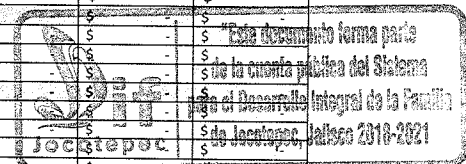 $ - $ -
$ - $ -
$ - $ "Este documento forma parte
- $ - $ de la cuenta pública del Sistema
- $ - $ para el Desarrollo Integral de la Familia
dif
Jocotepec $ de Jocotepec, Jalisco 2018-2021